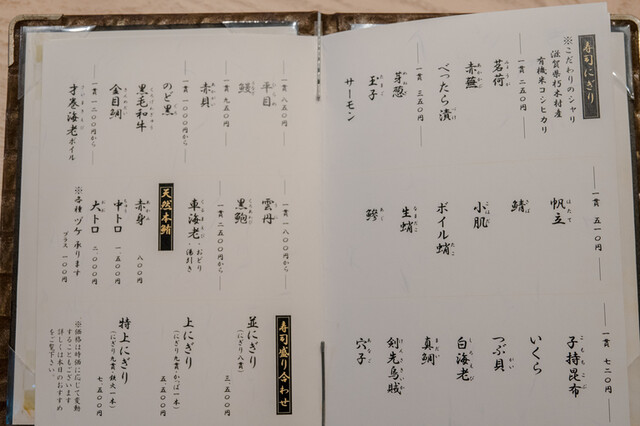 寿司にぎり
※こだわりのシャリ
滋賀県朽木村産
有機米コシヒカリ
一貫 二五〇円
茗荷
赤蕪
べったら漬
一貫 三五〇円
芽葱
玉子
サーモン
一貫 五一〇円
帆立
鯖
小肌
ボイル蛸
生蛸
鯵
一貫 七二〇円
子持昆布
いくら
つぶ貝
白海老
真鯛
剣先烏賊
穴子
一貫 八五〇円
平目
鰻
一貫 九五〇円
赤貝
のど黒
一貫 一〇〇〇円から
黒毛和牛
金目鯛
一貫 一二〇〇円から
才巻海老 ボイル
一貫 一八〇〇円から
雲丹
黒鮑
一貫 二五〇〇円から
車海老・おどり・湯引き
天然本鮪
赤身 八〇〇円
中トロ 一五〇〇円
大トロ 二一〇〇円
※各種 ヅケ 承ります
プラス 一〇〇円
寿司盛り合わせ
並にぎり
(にぎり八貫)
三、五〇〇円
上にぎり
(にぎり九貫・かっぱ一本)
五、五〇〇円
特上にぎり
(にぎり九貫・鉄火一本)
七、五〇〇円
※価格は時価に応じて変動
することもございます
詳しくは本日のおすすめ
をご覧下さい。